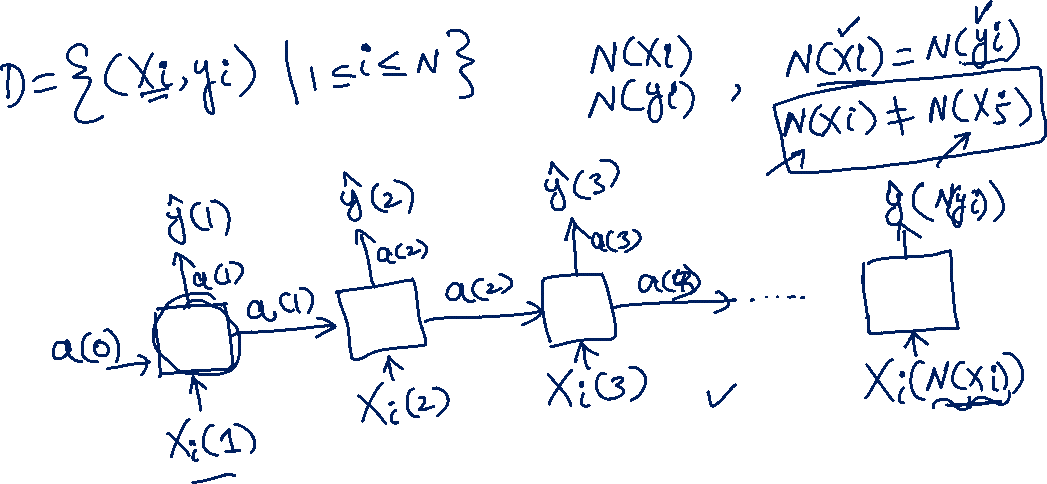 D={(Xi,yi) | 1≤i≤N}
N(Xi)
N(yi) , N(Xi)=N(yi)
N(Xi)≠N(Xj)
ŷ(1) ŷ(2) ŷ(3) ŷ(Nyi))
a(1) a(2) a(3)
a(0) a(1) a(2) ......
Xi(1) Xi(2) Xi(3) Xi(N(Xi))